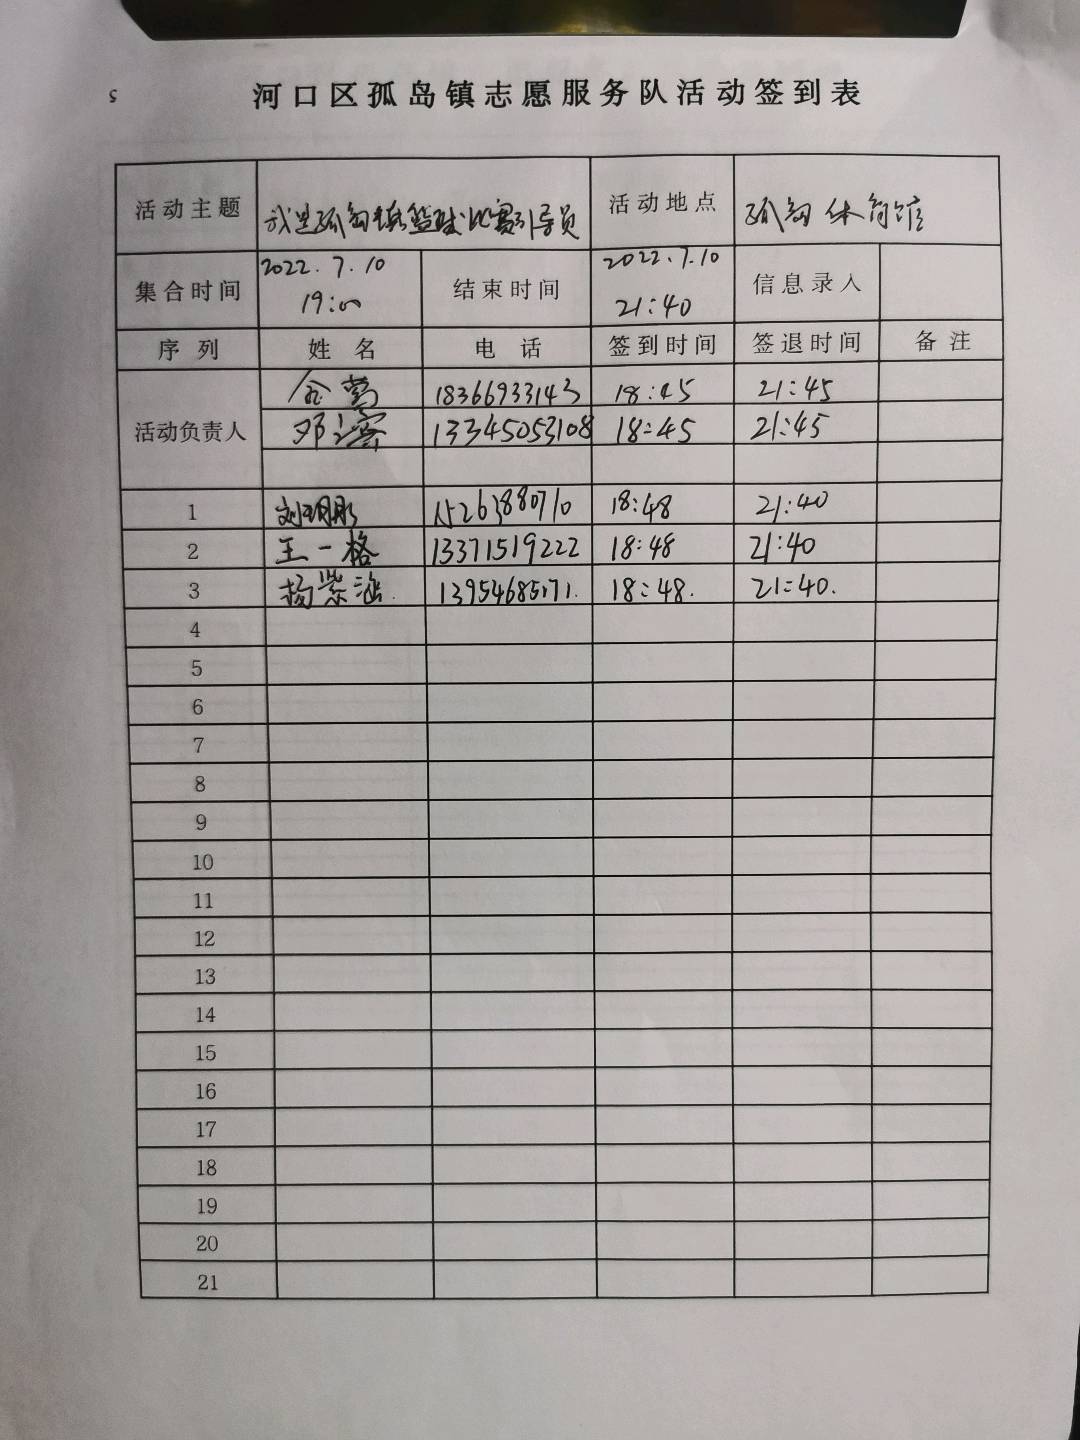 河口区孤岛镇志愿服务队活动签到表
活动主题 我是孤岛镇篮球比赛引导员 活动地点 孤岛体育馆
集合时间 2022.7.10 19:00 结束时间 2022.7.10 21:40 信息录入
序列 姓名 电话 签到时间 签退时间 备注
活动负责人
18366933143 18:45 21:45
邓 13345053108 18:45 21:45
1 刘 15263880710 18:48 21:40
2 王一格 13371519222 18:48 21:40
3 杨紫涵. 13954685171. 18:48. 21:40.
4
5
6
7
8
9
10
11
12
13
14
15
16
17
18
19
20
21